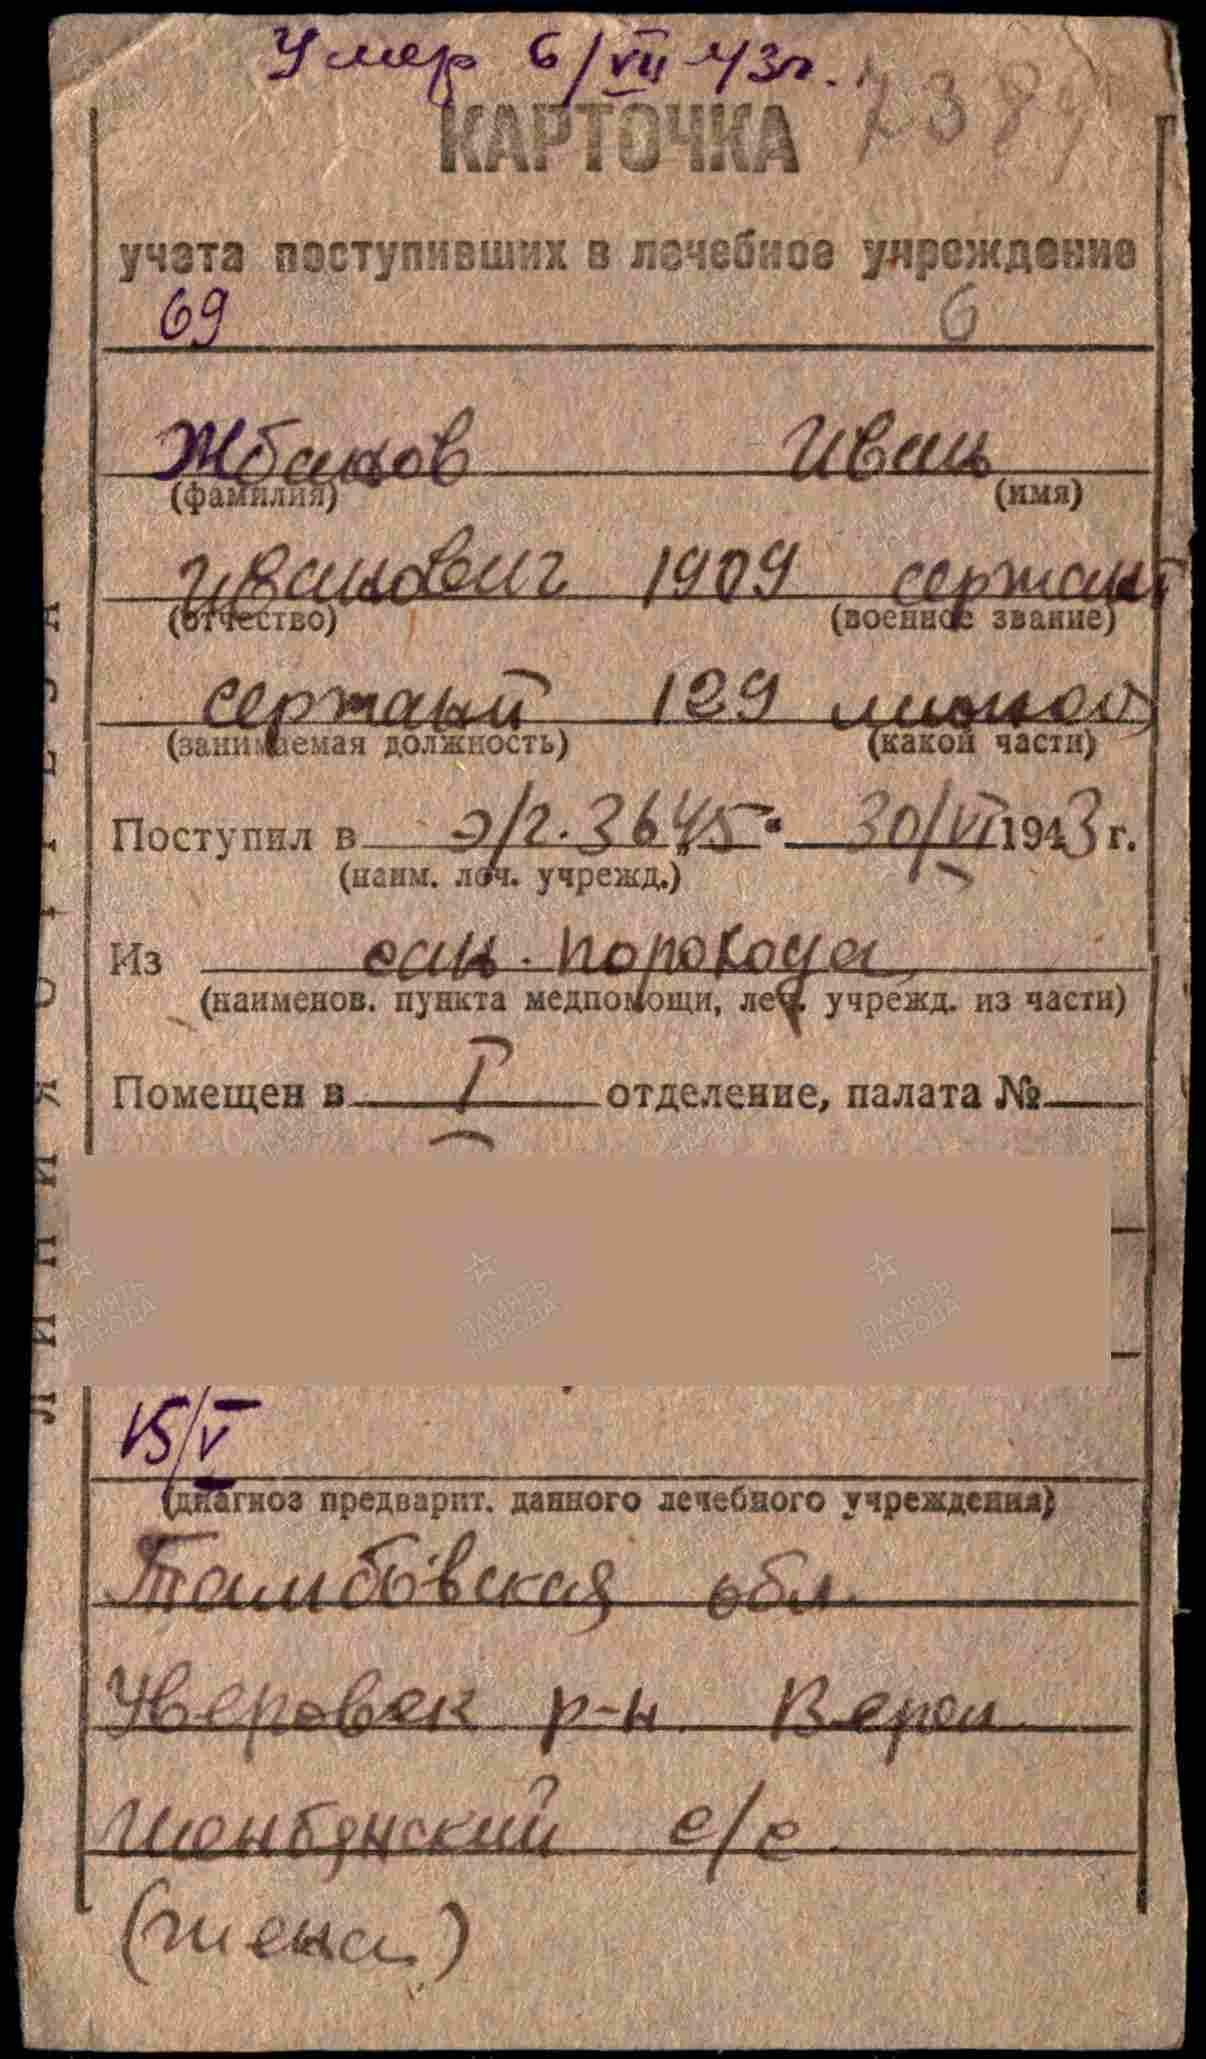 Умер 6/VII 43г.
КАРТОЧКА
учета поступивших в лечебное учреждение
69 6
Жбанов Иван
(фамилия) (имя)
Иванович 1909 сержант
(отчество) (военное звание)
сержант 129
(занимаемая должность) (какой части)
Поступил в э/г. 3645 30/VI 1943 г.
(наим. леч. учрежд.)
Из сан. порохода
(наименов. пункта медпомощи, леч. учрежд. из части)
Помещен в I отделение, палата №
15/V
(диагноз предварит. данного лечебного учреждения)
Тамбовская обл.
Уверовск р-н
с/с
(жена)
ЛИНИЯ ОТРЕЗА
ПАМЯТЬ НАРОДА